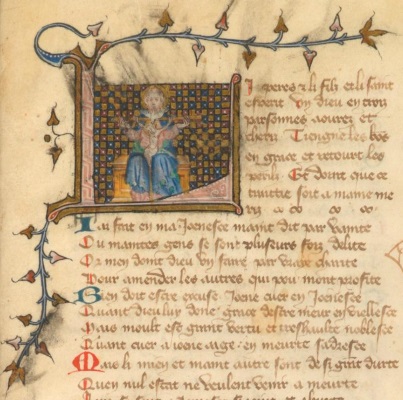 Li peres & li filz et li saint
esperit Vn dieu en trois
personnes aourez et
cheriz Tiengne les bons
en grace et retourt les
periz Et doint que ce
traittie soit a mame me
riz
Iai fait en ma Joenesce maint dit par vanite
Ou maintes gens se sont pluseurs foiz delite
Or men doint dieu vn faire par vraie charite
Pour amender les autres qui pou mont profite
Bien doit estre excuse Joene cuer en Joenesce
Quant dieu luy done grace destre meur en viellesce
Mais moult est grant vertu et treshaulte noblesce
Quant cuer a joene aage en meurte sadresce
Mais li mien et maint autre sont de si grant durte
Quen nul estat ne veulent venir a meurte